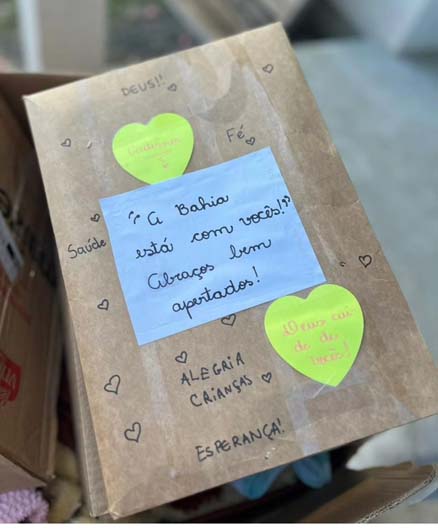 DEUS!!
Fé
Saúde
"A Bahia
está com vocês!"
Abraços bem
apertados!
Deus cui
da de
você!
ALEGRIA
CRIANÇAS
ESPERANÇA!